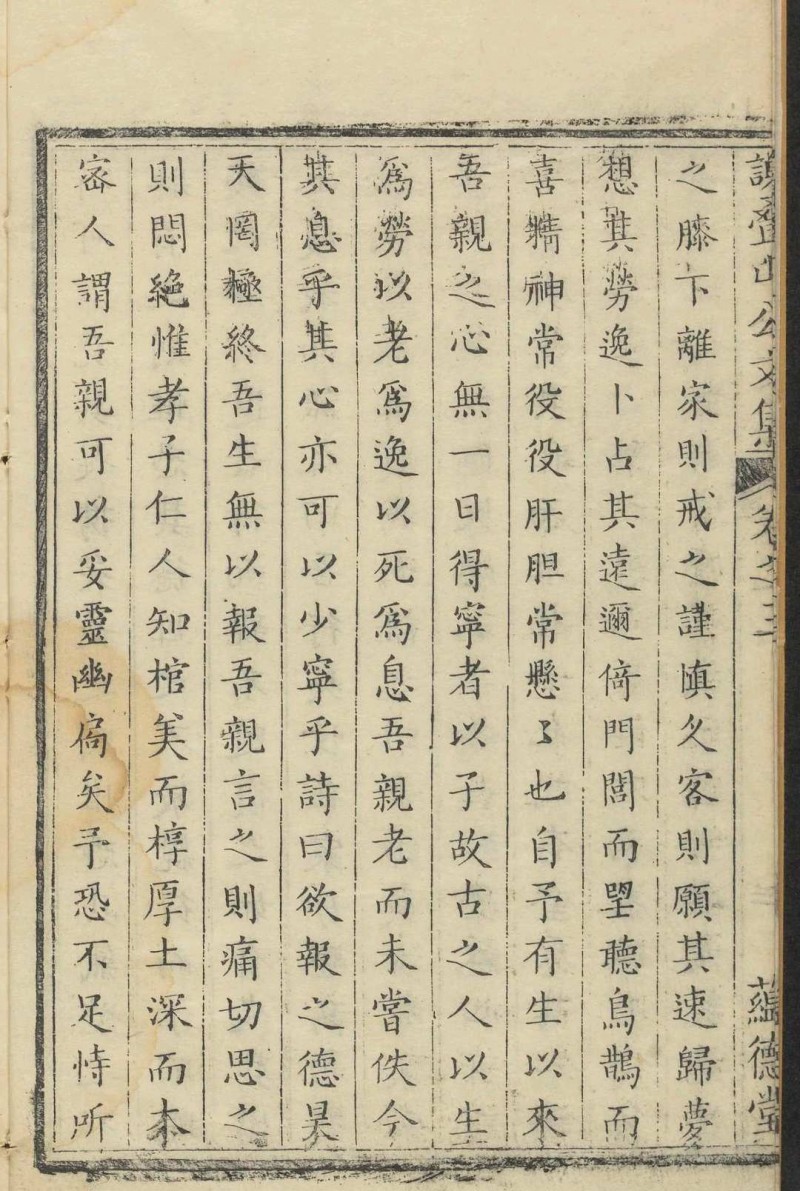 謝疊山公文集 卷之三 蘊德堂
之膝下離家則戒之謹慎久客則願其速歸夢
想其勞逸卜占其遠邇倚門閭而朢聽烏鵲而
喜精神常役役肝胆常懸〻也自予有生以來
吾親之心無一日得寧者以子故古之人以生
爲勞以老爲逸以死爲息吾親老而未嘗佚今
其息乎其心亦可以少寧乎詩曰欲報之德昊
天罔極終吾生無以報吾親言之則痛切思之
則悶絶惟孝子仁人知棺美而椁厚土深而木
宻人謂吾親可以妥靈幽扃矣予恐不足恃所